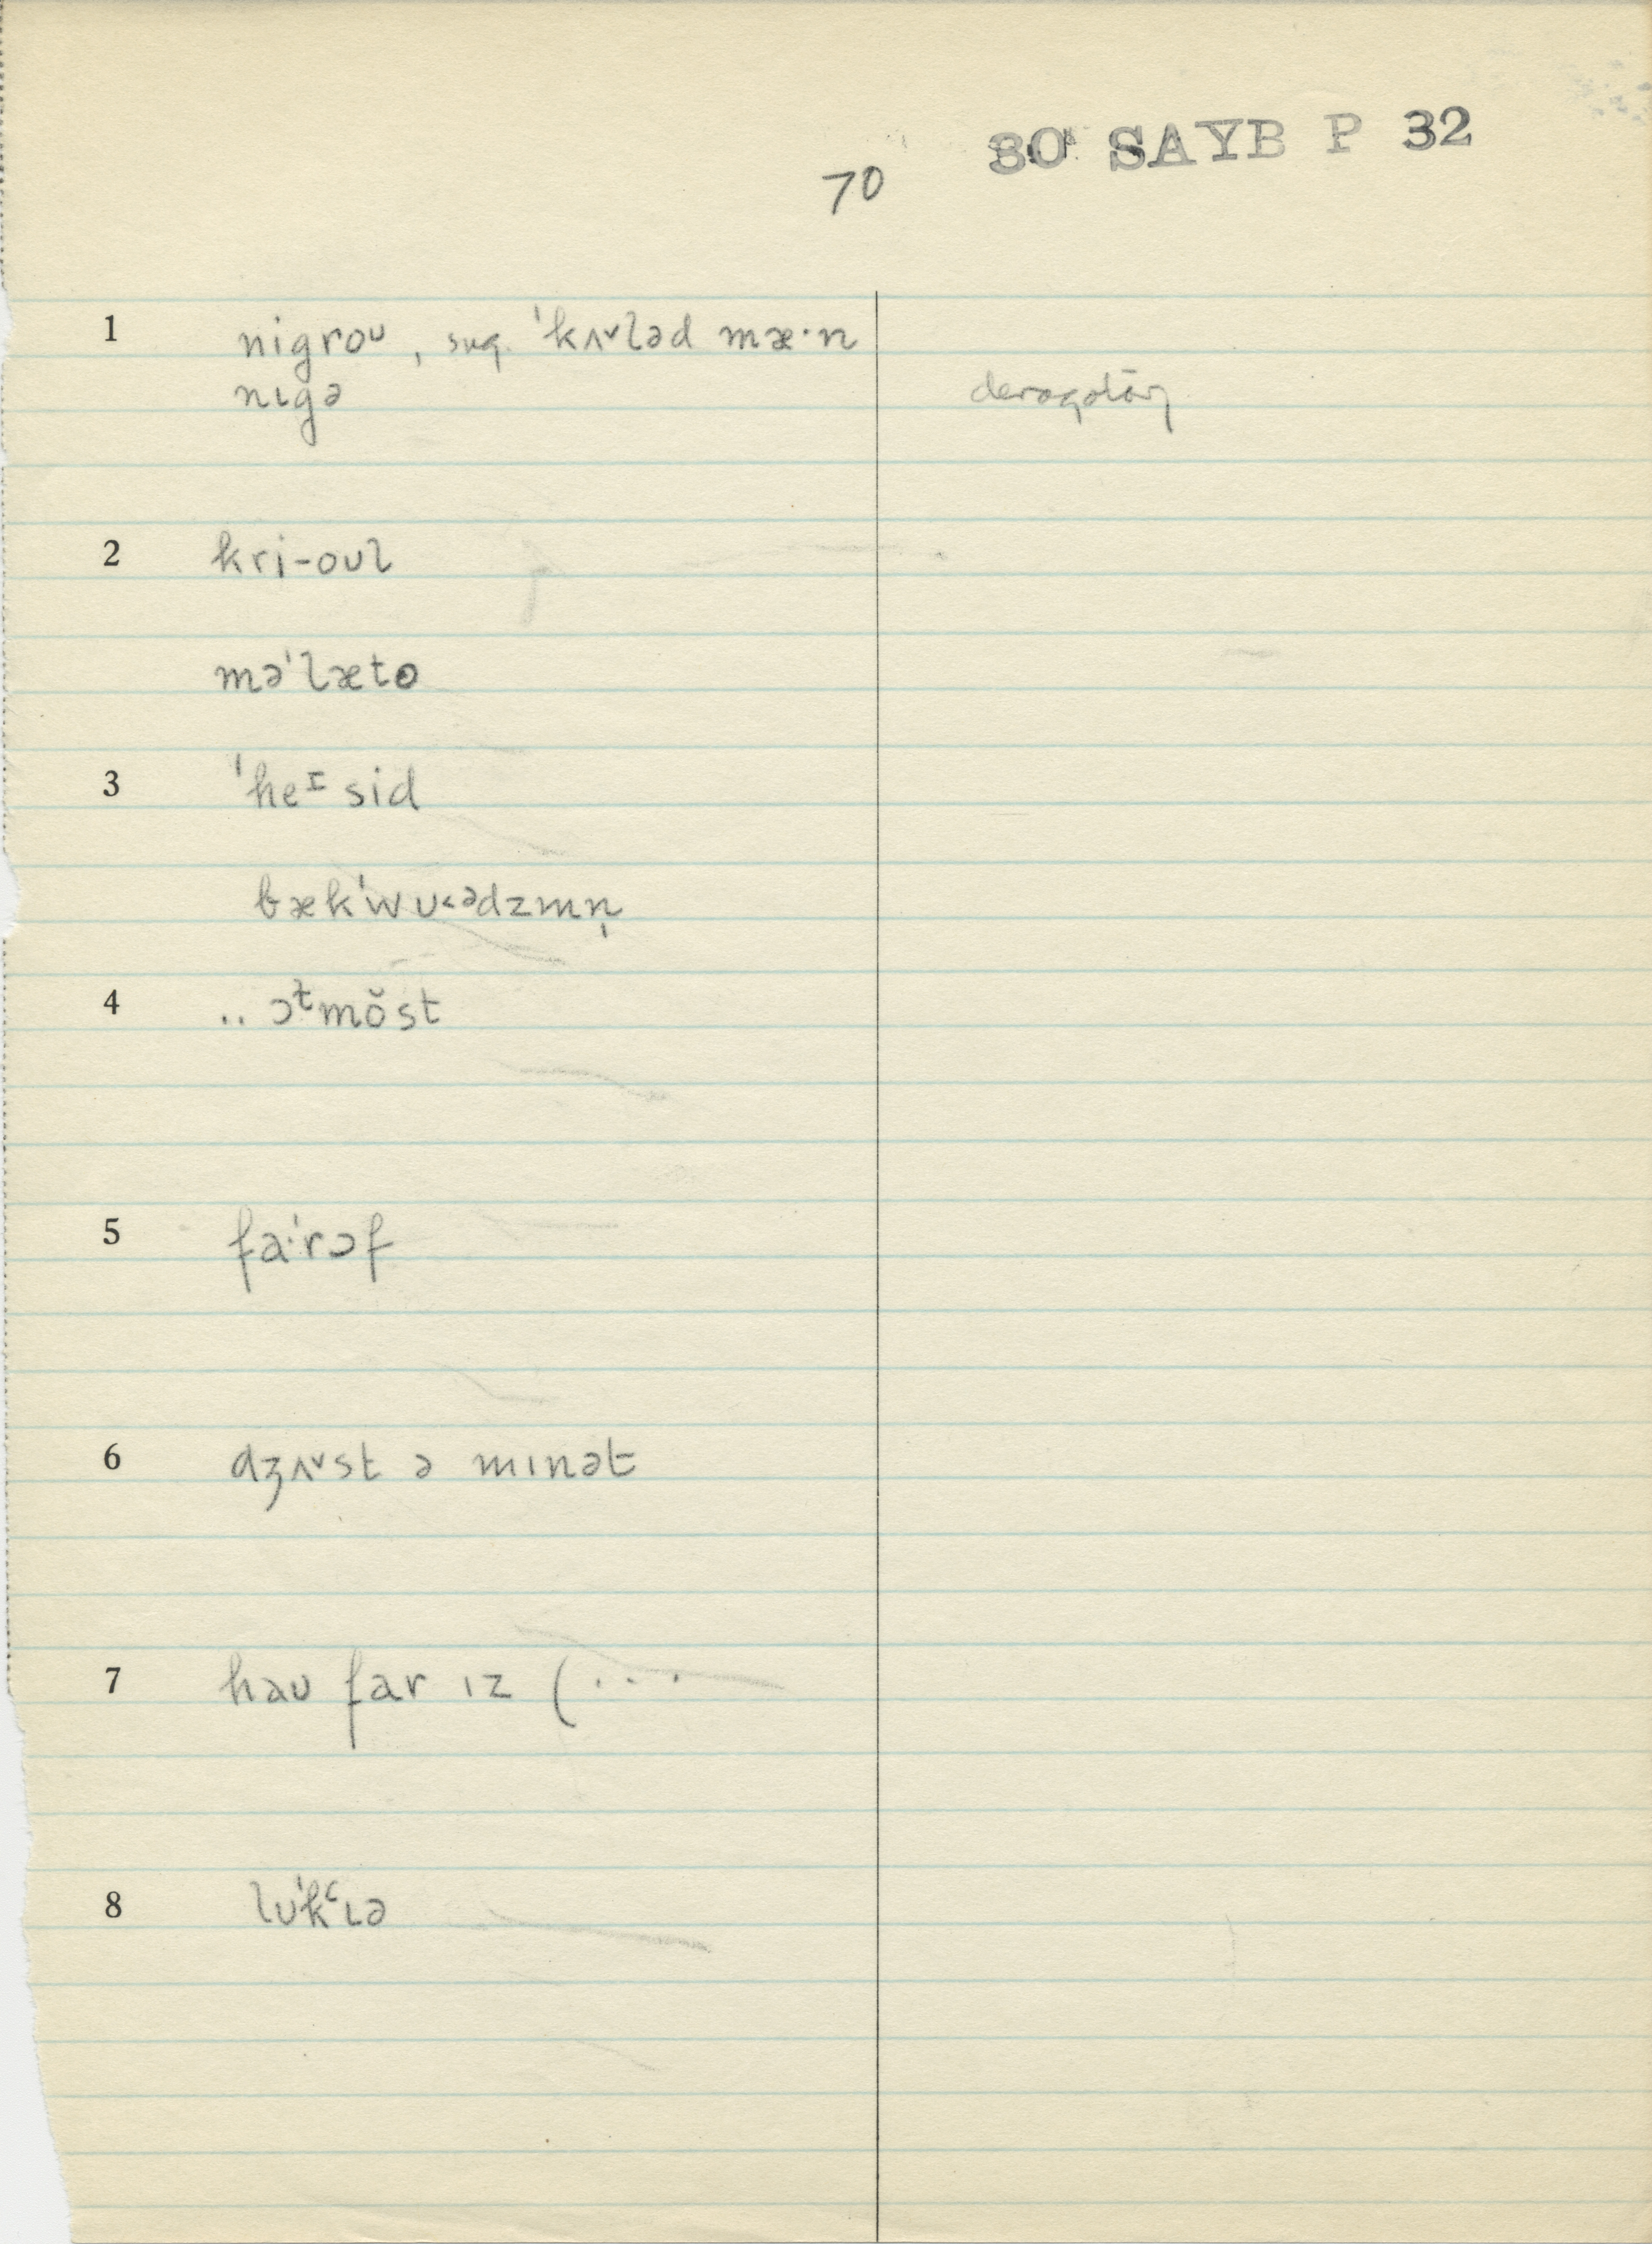 30 SAYB P 32
70
1 nigroᶷ, sug. ˈkʌ˅ləd mæ·n
nɪgə derogatory
2 kri-oʊl
məˈlæto
3 ˈheᴵsid
bækˈwʊ˂ᵊdzmn̩
4 .. ɔᵗmŏst
5 fa·ˈrɔf
6 dʒʌ˅st ə mɪnət
7 haʊ far ɪz (...
8 lʊˈkʿɪə